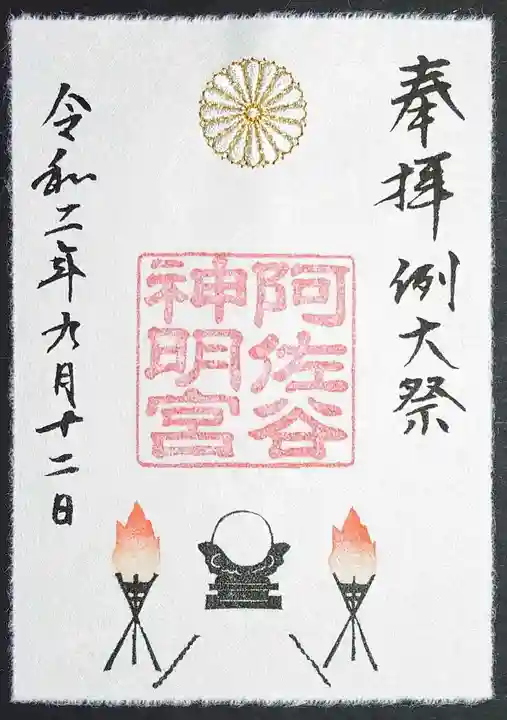 奉拝 例大祭
阿佐谷
神明宮
令和二年九月十二日